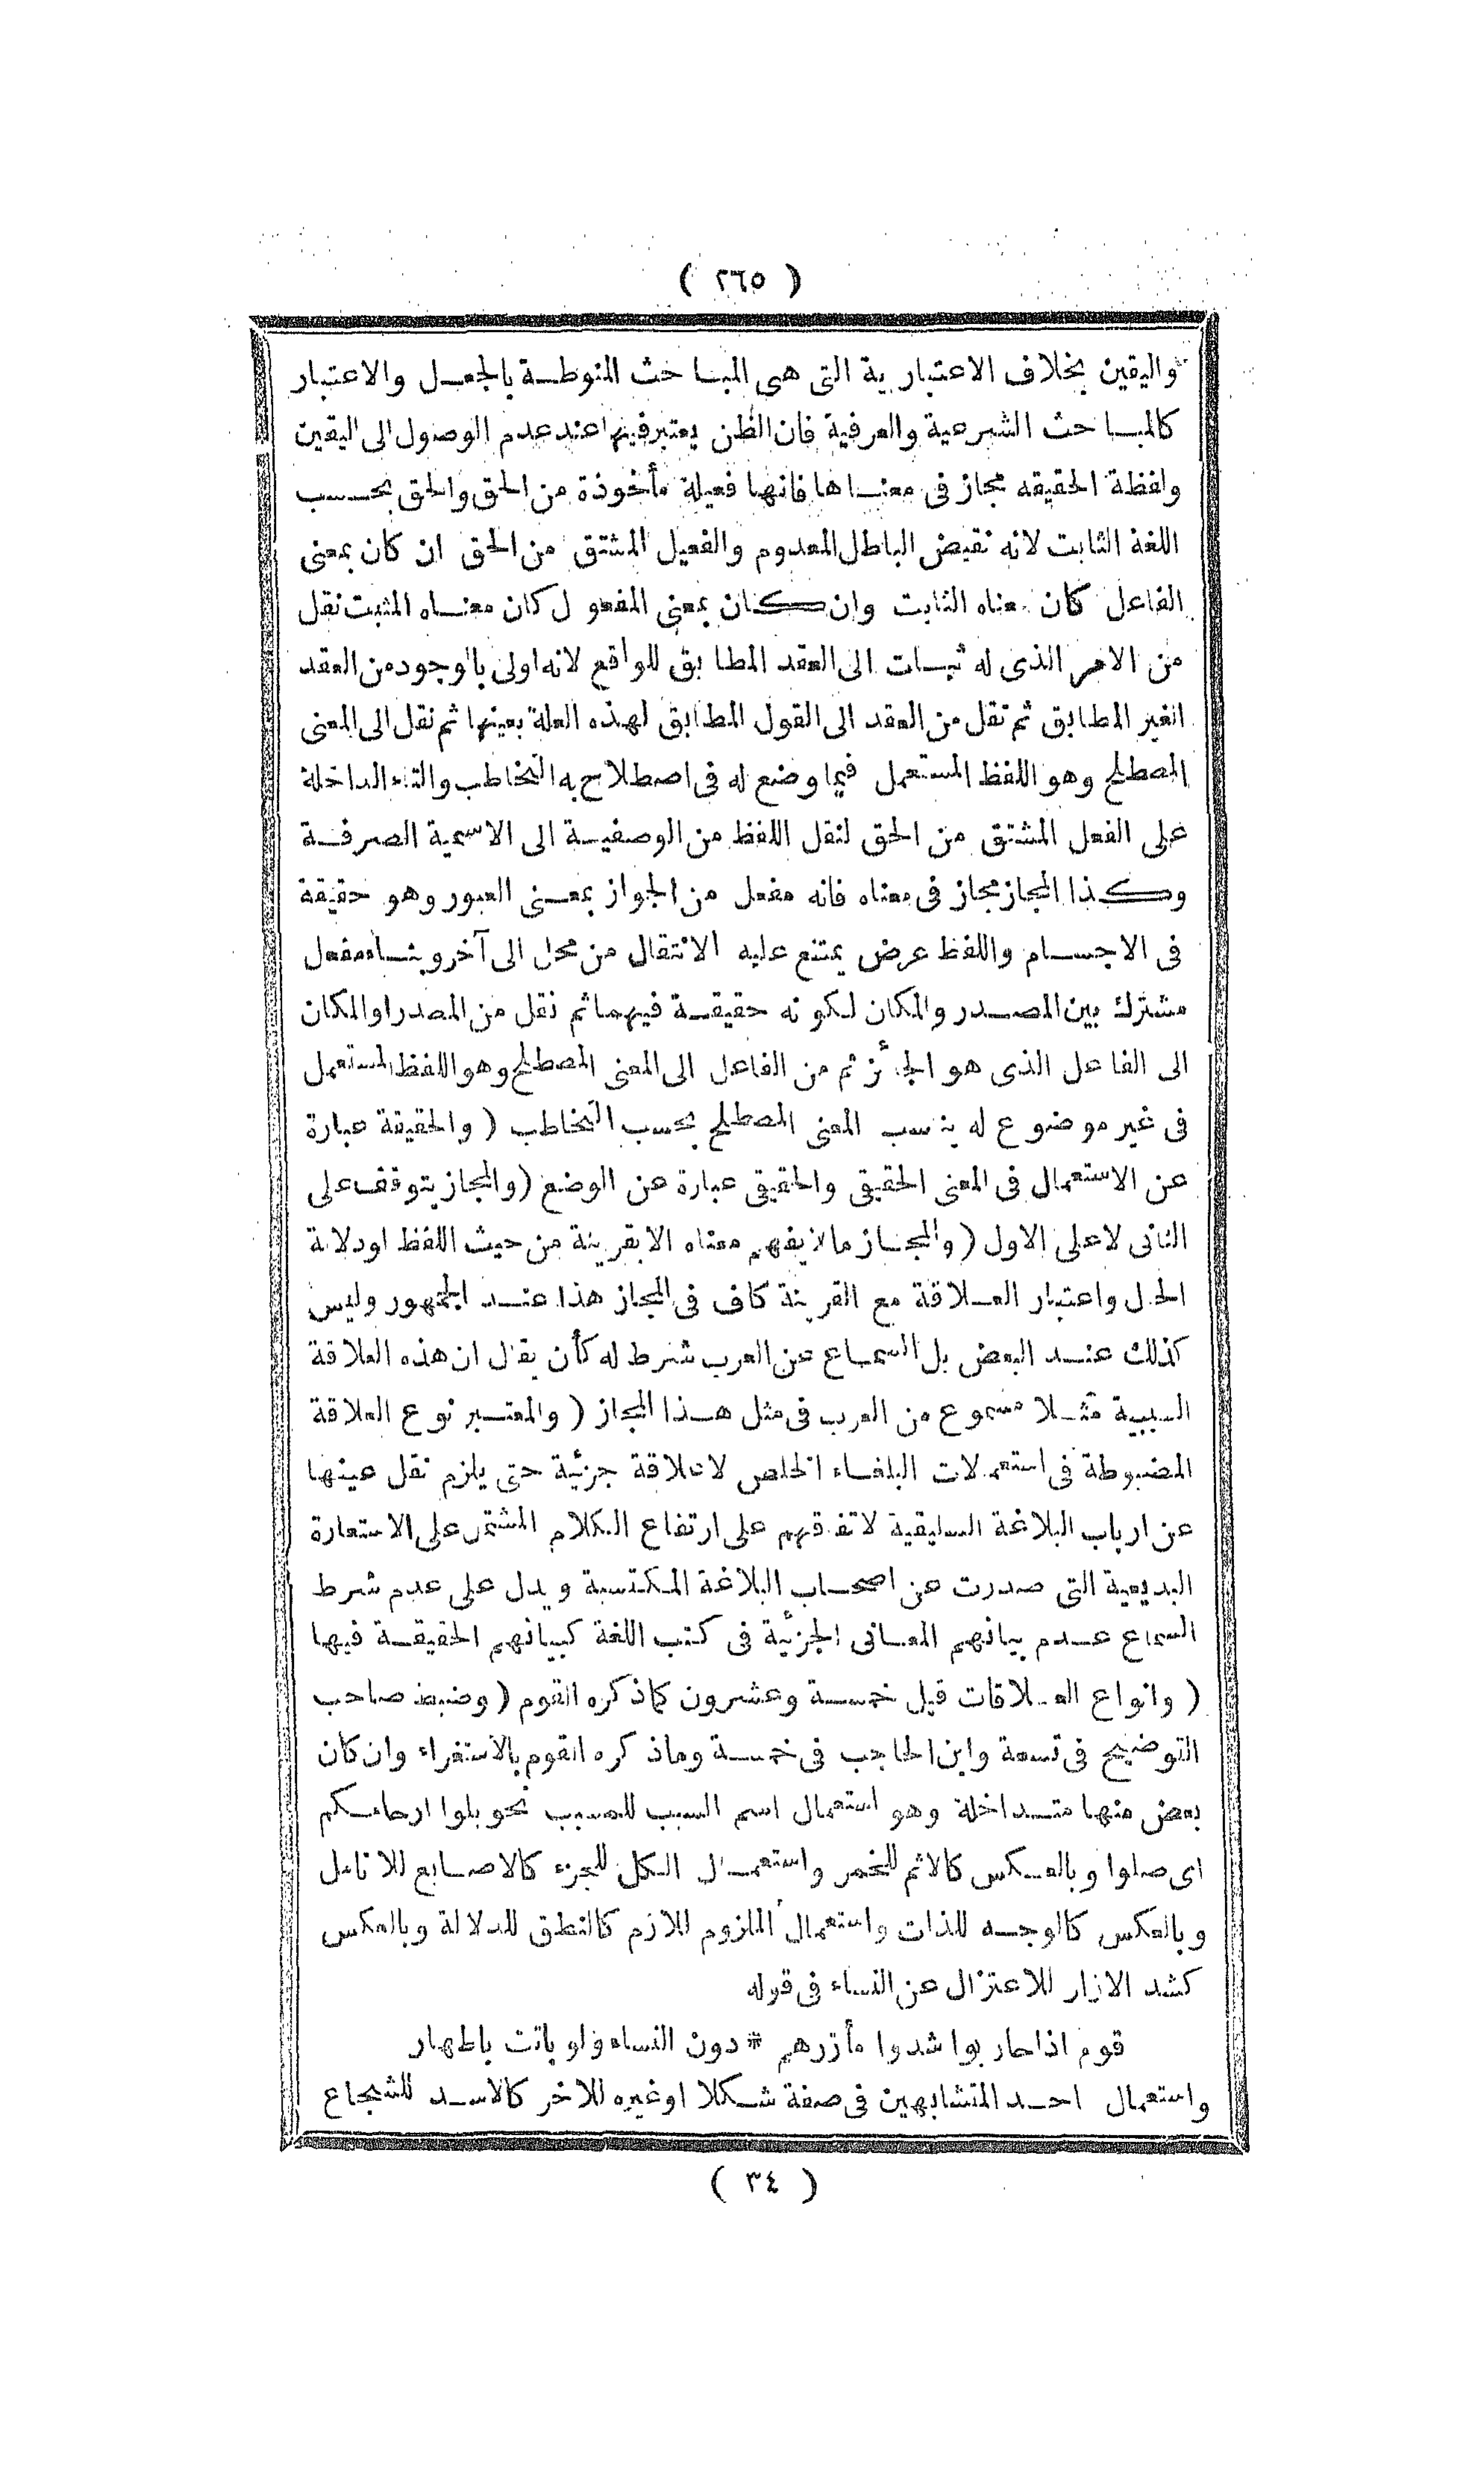 ( ٢٦٥ )
واليقين بخلاف الاعتبارية التى هى المباحث المنوطة بالجعل والاعتبار
كالمباحث الشرعية والعرفية فان الظن يعتبر فيها عند عدم الوصول الى اليقين
ولفظة الحقيقه مجاز فى معناها فانها فعيلة مأخوذة من الحق والحق بحسب
اللغة الثابت لانه نقيض الباطل المعدوم والفعيل المشتق من الحق ان كان بمعنى
الفاعل كان معناه الثابت وان كان بمعنى المفعول كان معناه المثبت نقل
من الامر الذى له ثبات الى العقد المطابق للواقع لانه اولى بالوجود من العقد
الغير المطابق ثم نقل من العقد الى القول المطابق لهذه العلة بعينها ثم نقل الى المعنى
المصطلح وهو اللفظ المستعمل فيما وضع له فى اصطلاح به التخاطب والتاء الداخلة
على الفعل المشتق من الحق لنقل اللفظ من الوصفية الى الاسمية الصرفة
وكذا المجاز مجاز فى معناه فانه مفعل من الجواز بمعنى العبور وهو حقيقة
فى الاجسام واللفظ عرض يمتنع عليه الانتقال من محل الى آخر وبناء مفعل
مشترك بين المصدر والمكان لكونه حقيقة فيهما ثم نقل من المصدر او المكان
الى الفاعل الذى هو الجائز ثم من الفاعل الى المعنى المصطلح وهو اللفظ المستعمل
فى غير موضوع له يناسب المعنى المصطلح بحسب التخاطب ( والحقيقة عبارة
عن الاستعمال فى المعنى الحقيقى والحقيقى عبارة عن الوضع ( والمجاز يتوقف على
الثانى لا على الاول ( والمجاز مالا يفهم معناه الا بقرينة من حيث اللفظ او دلالة
الحال واعتبار العلاقة مع القرينة كاف فى المجاز هذا عند الجمهور وليس
كذلك عند البعض بل السماع عن العرب شرط له كأن يقال ان هذه العلاقة
السببية مثلا مسموع من العرب فى مثل هذا المجاز ( والمعتبر نوع العلاقة
المضبوطة فى استعمالات البلغاء الخلص لا علاقة جزئية حتى يلزم نقل عينها
عن ارباب البلاغة السليقية لاتفاقهم على ارتفاع الكلام المشتمل على الاستعارة
البديعية التى صدرت عن اصحاب البلاغة المكتسبة ويدل على عدم شرط
السماع عدم بيانهم المعانى الجزئية فى كتب اللغة كبيانهم الحقيقة فيها
( وانواع العلاقات قيل خمسة وعشرون كما ذكره القوم ( وضبط صاحب
التوضيح فى تسعة وابن الحاجب فى خمسة وماذكره القوم بالاستقراء وان كان
بعض منها متداخلة وهو استعمال اسم السبب للمسبب نحو بلوا ارحامكم
اى صلوا وبالعكس كالاثم للخمر واستعمال الكل للجزء كالاصابع للانامل
وبالعكس كالوجه للذات واستعمال الملزوم للازم كالنطق للدلالة وبالعكس
كشد الازار للاعتزال عن النساء فى قوله
قوم اذا حاربوا شدوا مأزرهم * دون النساء ولو باتت باطهار
واستعمال احد المتشابهين فى صفة شكلا او غيره للاخر كالاسد للشجاع
( ٣٤ )